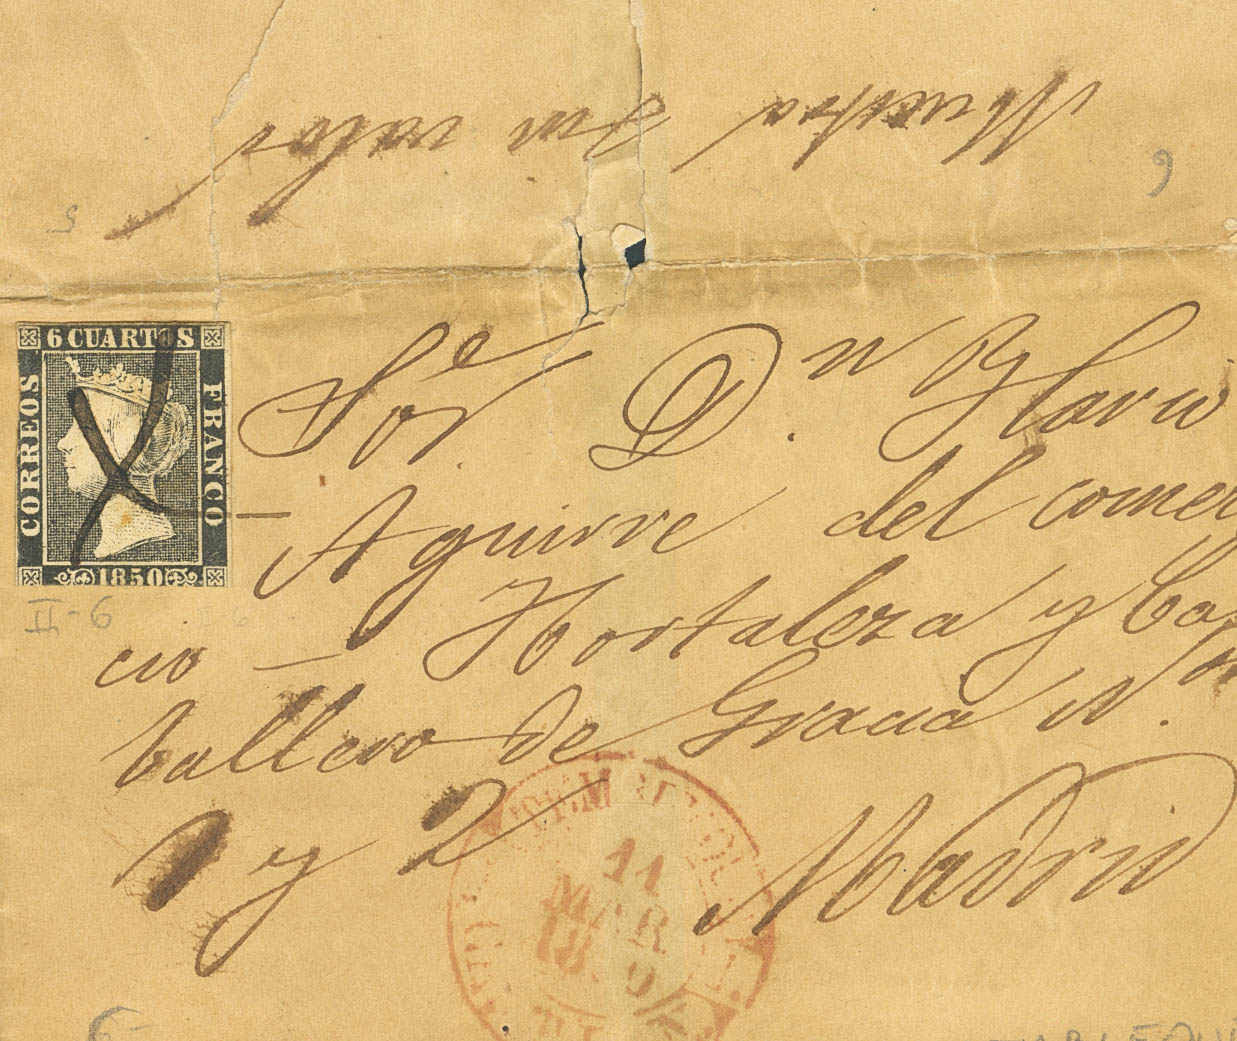 Muestras sin valor
6 CUARTOS
CORREOS
FRANCO
1850
II-6
Sor. Dn Ylario
Aguirre del comer
cio - Hortaleza y Ca
ballero de Gracia N.
1 y 2 Madrid
11
MAR
18